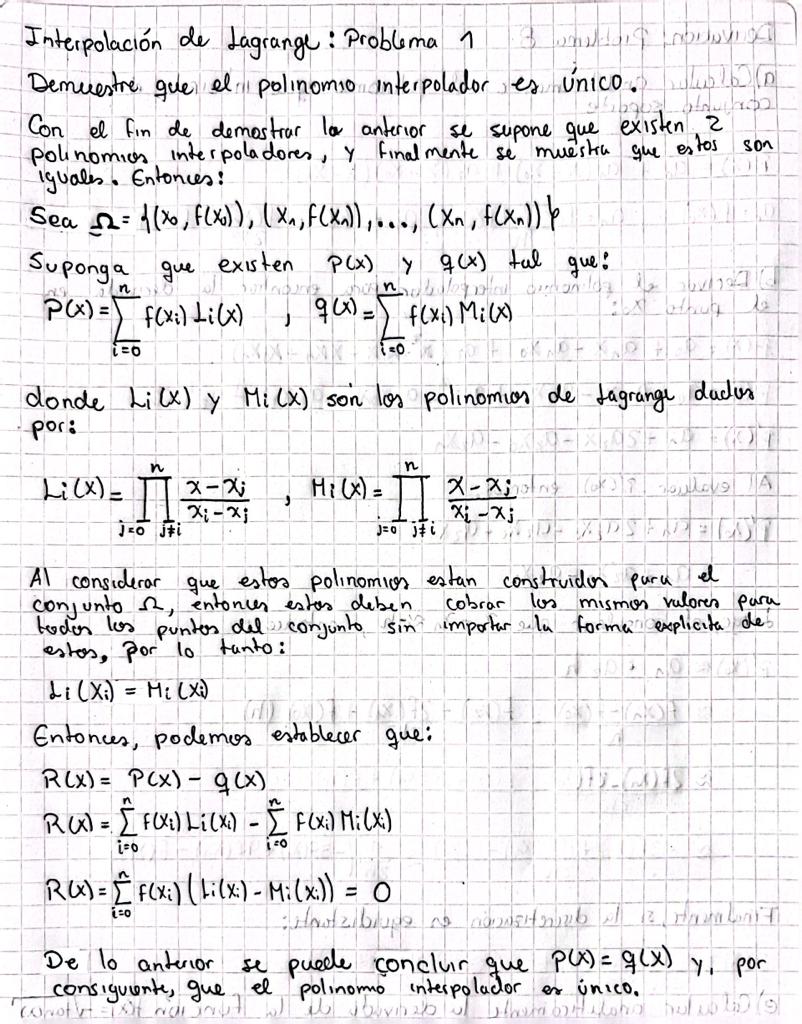 Interpolación de Lagrange: Problema 1
Demuestre que el polinomio interpolador es único.
Con el fin de demostrar lo anterior se supone que existen 2
polinomios interpoladores, y finalmente se muestra que estos son
iguales. Entonces:
Sea Ω = {(x₀, f(x₀)), (x₁, f(x₁)), ..., (xₙ, f(xₙ))}
Suponga que existen P(x) y q(x) tal que:
P(x) = ∑_{i=0}^{n} f(xᵢ) Lᵢ(x) , q(x) = ∑_{i=0}^{n} f(xᵢ) Mᵢ(x)
donde Li(x) y Mi(x) son los polinomios de Lagrange dados
por:
Li(x) = ∏_{j=0 j≠i}^{n} (x-xⱼ)/(xᵢ-xⱼ) , Mi(x) = ∏_{j=0 j≠i}^{n} (x-xⱼ)/(xᵢ-xⱼ)
Al considerar que estos polinomios estan construidos para el
conjunto Ω, entonces estos deben cobrar los mismos valores para
todos los puntos del conjunto sin importar la forma explicita de
estos, por lo tanto:
Li(xi) = Mi(xi)
Entonces, podemos establecer que:
R(x) = P(x) - q(x)
R(x) = ∑_{i=0}^{n} f(xi) Li(xi) - ∑_{i=0}^{n} f(xi) Mi(xi)
R(x) = ∑_{i=0}^{n} f(xi) (Li(xi) - Mi(xi)) = 0
De lo anterior se puede concluir que P(x) = q(x) y, por
consiguiente, que el polinomo interpolador es único.